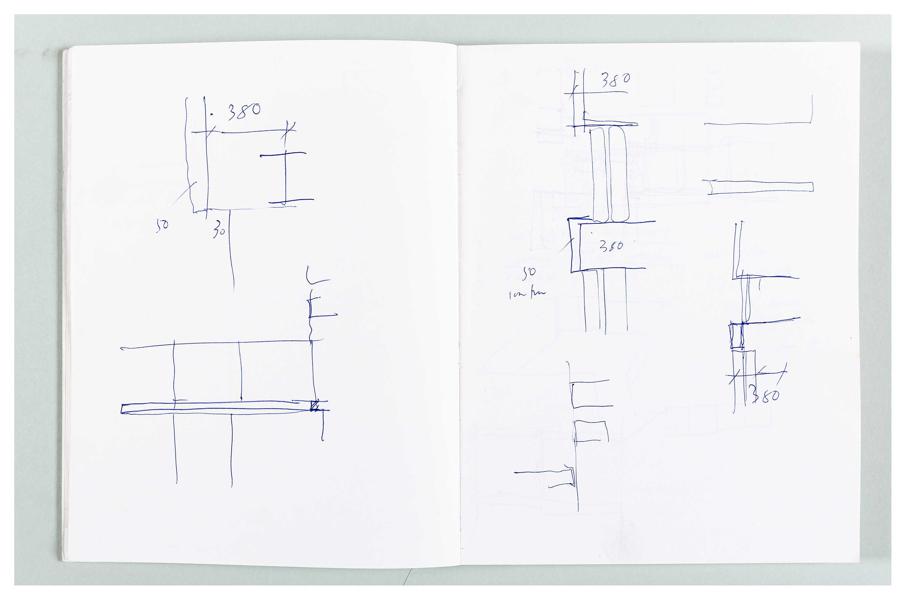 380
50
30
380
380
50
380